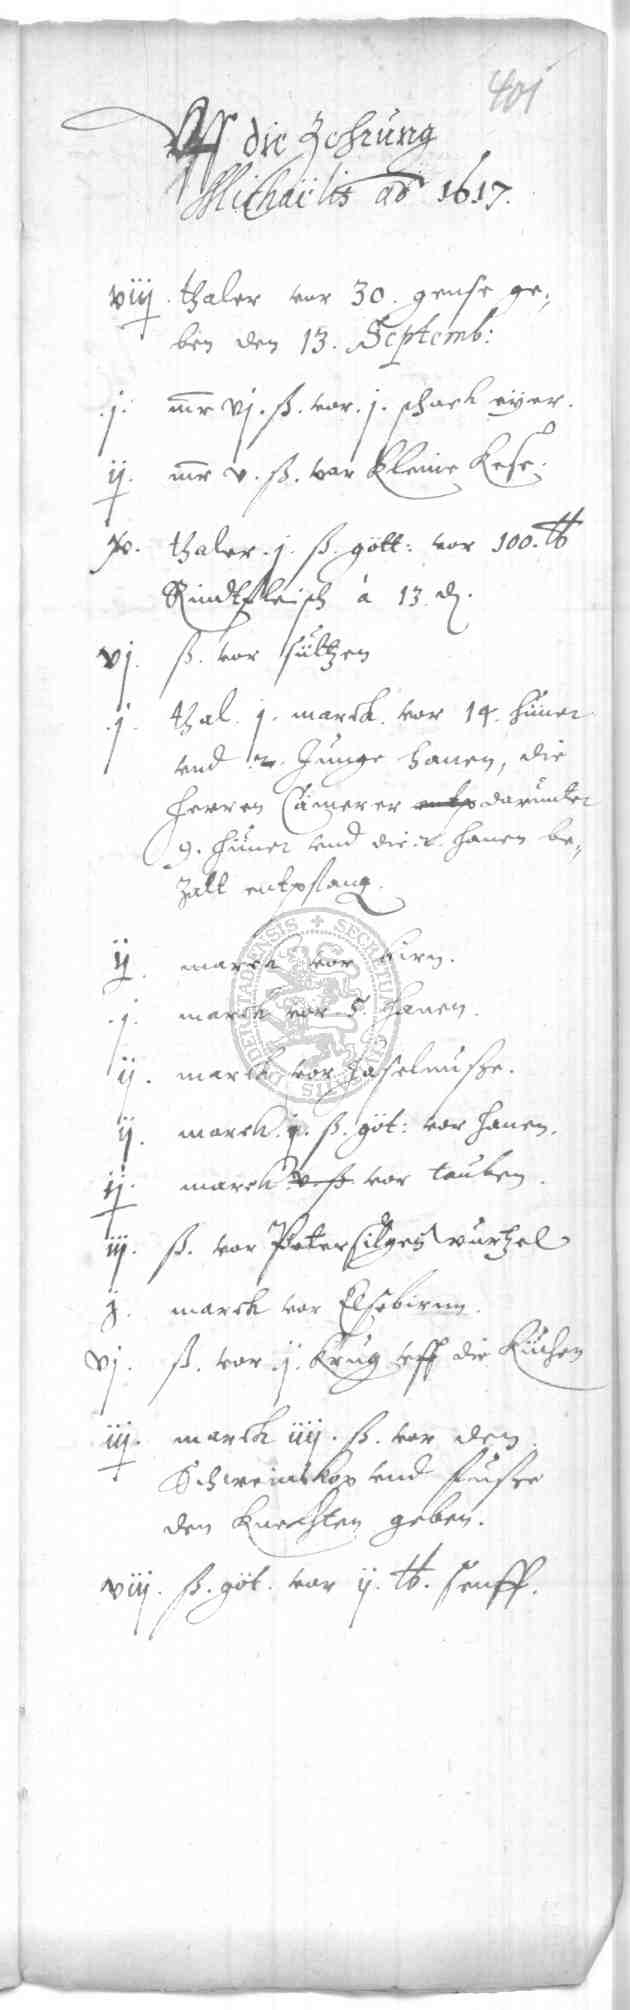 401
Vff die Zehrung
Michaëlis ao 1617.
viij. thaler vor 30. gense ge,
ben den 13. Septemb:
.j. mr vj. ß. vor .j. schock eyer.
ij. mr v. ß. vor kleine Kese.
x. thaler .j. ß. gött: vor 100. lb
Rindtfleisch á 13 d.
vj. ß. vor sültzen
.j. thal. j. marck. vor 14. hüner
vnd 2. Junge hanen, die
herren Cämerer entp darunter
9. hüner vnd die 2. hanen be,
zalt entpfang.
ij. marck vor birn.
.j. marck vor 5 hanen.
ij. marck vor haselnusse.
SECRETUM CIVITATIS DUDERSTADENSIS
ij. marck. j. ß. göt: vor hanen.
ij. marck v ß vor tauben.
iij. ß. vor Petersilgen wurtzel
j. marck vor Elsebirnn.
vj. ß. vor .j. krug vff die Küchen
iij. marck iiij. ß. vor den
Schweinskop vnd füsse
den knechten geben.
viij. ß. göt. vor ij. lb. senff.